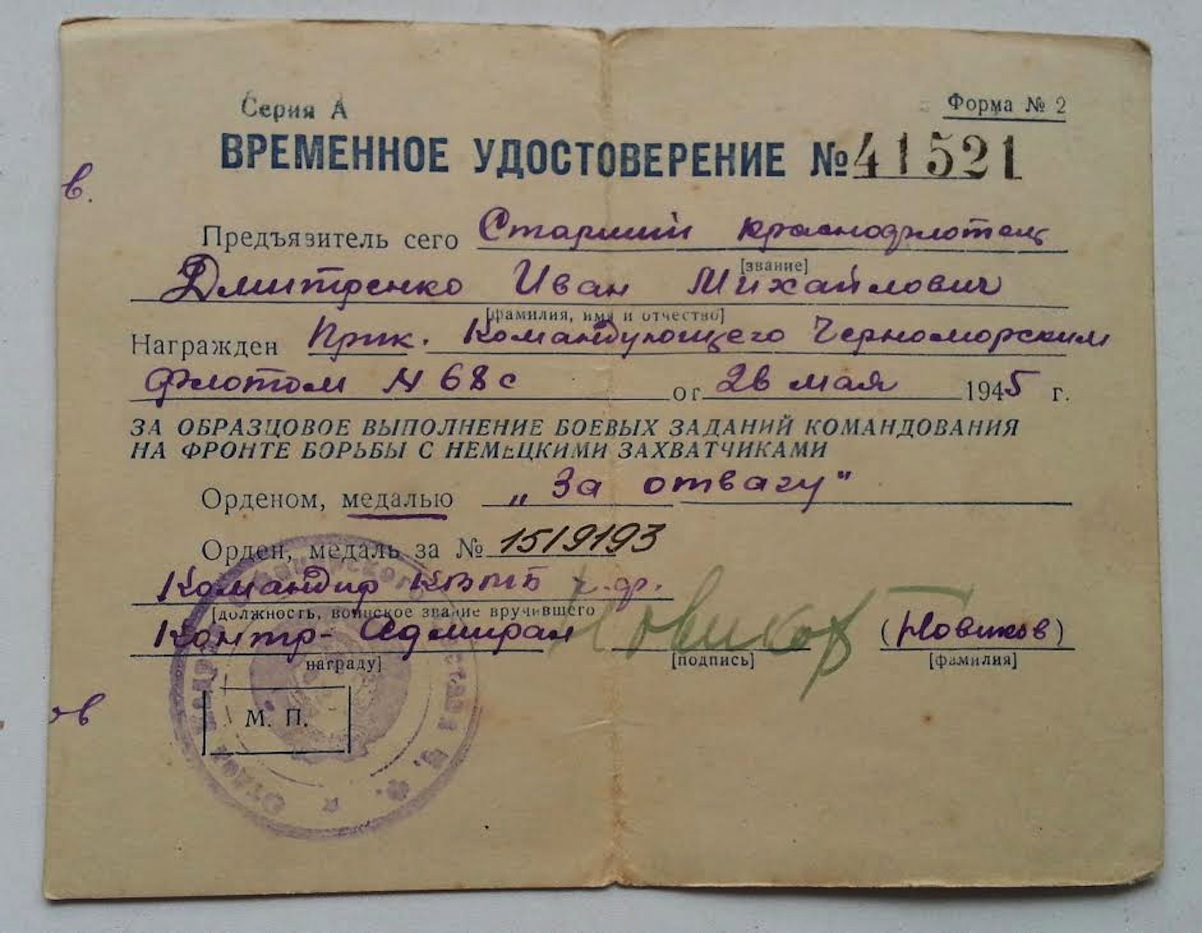 Серия А
Форма № 2
ВРЕМЕННОЕ УДОСТОВЕРЕНИЕ № 41521
в.
Предъязитель сего Старший краснофлотец
[звание]
Дмитренко Иван Михайлович
[фамилия, имя и отчество]
Награжден Прик. Командующего Черноморским
флотом № 68с от 26 мая 1945 г.
ЗА ОБРАЗЦОВОЕ ВЫПОЛНЕНИЕ БОЕВЫХ ЗАДАНИЙ КОМАНДОВАНИЯ
НА ФРОНТЕ БОРЬБЫ С НЕМЕЦКИМИ ЗАХВАТЧИКАМИ
Орденом, медалью „За отвагу"
Орден, медаль за № 1519193
Командир КВМБ ч.ф.
[должность, воинское звание вручившего
Контр-Адмирал Новиков (Новиков)
награду] [подпись] [фамилия]
ов
М. П.